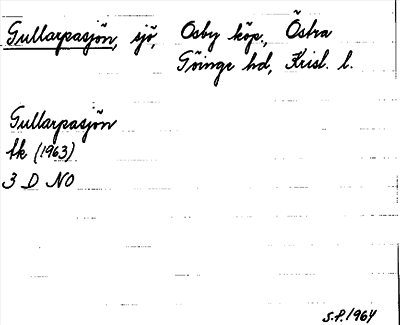 Gullarpasjön, sjö, Osby köp., Östra
Göinge hd, Krist. l.
Gullarpasjön
tk (1963)
3 D NO
S.P. 1964